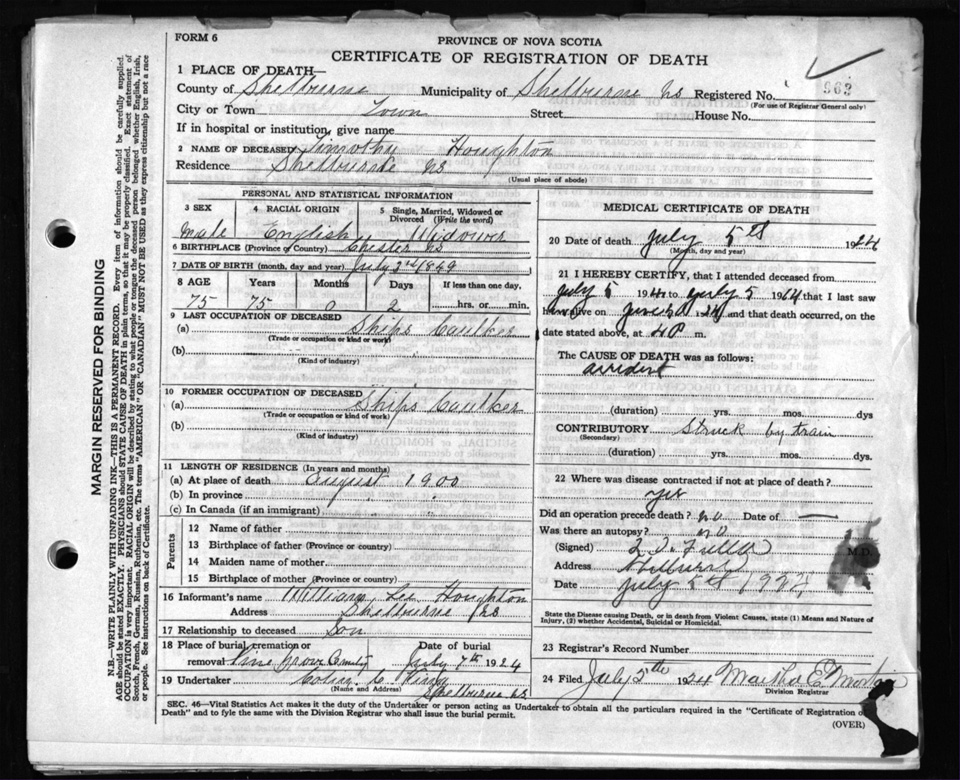 FORM 6
PROVINCE OF NOVA SCOTIA
CERTIFICATE OF REGISTRATION OF DEATH
963
1 PLACE OF DEATH—
County of Shelburne Municipality of Shelburne NS Registered No.
(For use of Registrar General only)
City or Town Town Street House No.
If in hospital or institution, give name
2 NAME OF DECEASED Timothy Houghton
Residence Shelburne NS
(Usual place of abode)
MARGIN RESERVED FOR BINDING
N.B.—WRITE PLAINLY WITH UNFADING INK—THIS IS A PERMANENT RECORD. Every item of information should be carefully supplied.
AGE should be stated EXACTLY. PHYSICIANS should STATE CAUSE OF DEATH in plain terms, so that it may be properly classified. Exact statement of
OCCUPATION is very important. RACIAL ORIGIN will be described by stating to what people or tongue the deceased person belonged whether English, Irish,
Scotch, French, German, Russian, Ruthenian, etc. The terms "AMERICAN" OR "CANADIAN" MUST NOT BE USED as they express citizenship but not a race
or people. See instructions on back of Certificate.
PERSONAL AND STATISTICAL INFORMATION
3 SEX 4 RACIAL ORIGIN 5 Single, Married, Widowed or
Divorced (Write the word)
Male English Widower
6 BIRTHPLACE (Province or Country) Chester NS
7 DATE OF BIRTH (month, day and year) July 3rd 1849
8 AGE Years Months Days If less than one day,
75 75 0 2 hrs. or min.
9 LAST OCCUPATION OF DECEASED
(a) Ships Caulker
(Trade or occupation or kind of work)
(b)
(Kind of industry)
10 FORMER OCCUPATION OF DECEASED
(a) Ships Caulker
(Trade or occupation or kind of work)
(b)
(Kind of industry)
11 LENGTH OF RESIDENCE (In years and months)
(a) At place of death August 1900
(b) In province
(c) In Canada (if an immigrant)
Parents
12 Name of father
13 Birthplace of father (Province or country)
14 Maiden name of mother
15 Birthplace of mother (Province or country)
16 Informant's name William Houghton
Address Shelburne NS
17 Relationship to deceased Son
18 Place of burial, cremation or Date of burial
removal Pine Grove July 7th 1924
19 Undertaker Colin C.
(Name and Address) Shelburne NS
MEDICAL CERTIFICATE OF DEATH
20 Date of death July 5th 1924
(Month, day and year)
21 I HEREBY CERTIFY, that I attended deceased from
July 5 to July 5 that I last saw
alive on and that death occurred, on the
date stated above, at m.
The CAUSE OF DEATH was as follows:
accident
(duration) yrs. mos. dys
CONTRIBUTORY Struck by train
(Secondary)
(duration) yrs. mos. dys.
22 Where was disease contracted if not at place of death?
yes
Did an operation precede death? no Date of —
Was there an autopsy? no
(Signed) M.D.
Address
Date July 5th
State the Disease causing Death, or in death from Violent Causes, state (1) Means and Nature of
Injury, (2) whether Accidental, Suicidal or Homicidal.
23 Registrar's Record Number
24 Filed July 5th 1924 Martha E.
Division Registrar
SEC. 46—Vital Statistics Act makes it the duty of the Undertaker or person acting as Undertaker to obtain all the particulars required in the "Certificate of Registration of
Death" and to fyle the same with the Division Registrar who shall issue the burial permit.
(OVER)